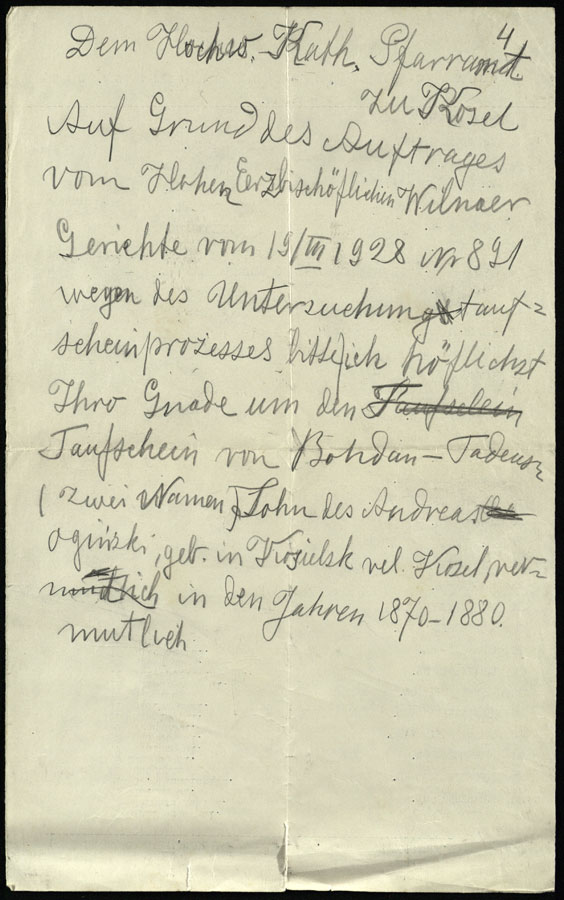 4
Dem Hochw. Kath. Pfarramt
zu Kosel
Auf Grund des Auftrages
vom Hohen Erzbischöflichen Wilnaer
Gerichte vom 19/III 1928 Nr 891
wegen des Untersuchungstauf=
scheinprozesses bitte ich höflichst
Ihro Gnade um den Taufschein
Taufschein von Bohdan – Tadeusz
(zwei Namen) Sohn des Andreas
Oginski, geb. in Kosielsk vel. Kosel, ver=
mutlich in den Jahren 1870–1880.
mutlich